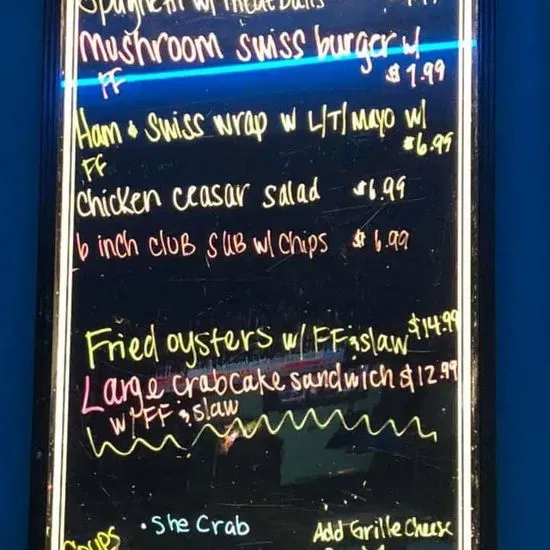 Spaghetti w/ Meatballs
Mushroom Swiss burger w/
FF $7.99
Ham & Swiss wrap w L/T/Mayo w/
FF $6.99
Chicken Ceasar salad $6.99
6 inch club sub w/ chips $6.99
Fried oysters w/ FF & slaw $14.99
Large crabcake sandwich $12.99
w/ FF & slaw
Soups • She Crab Add Grille Cheese